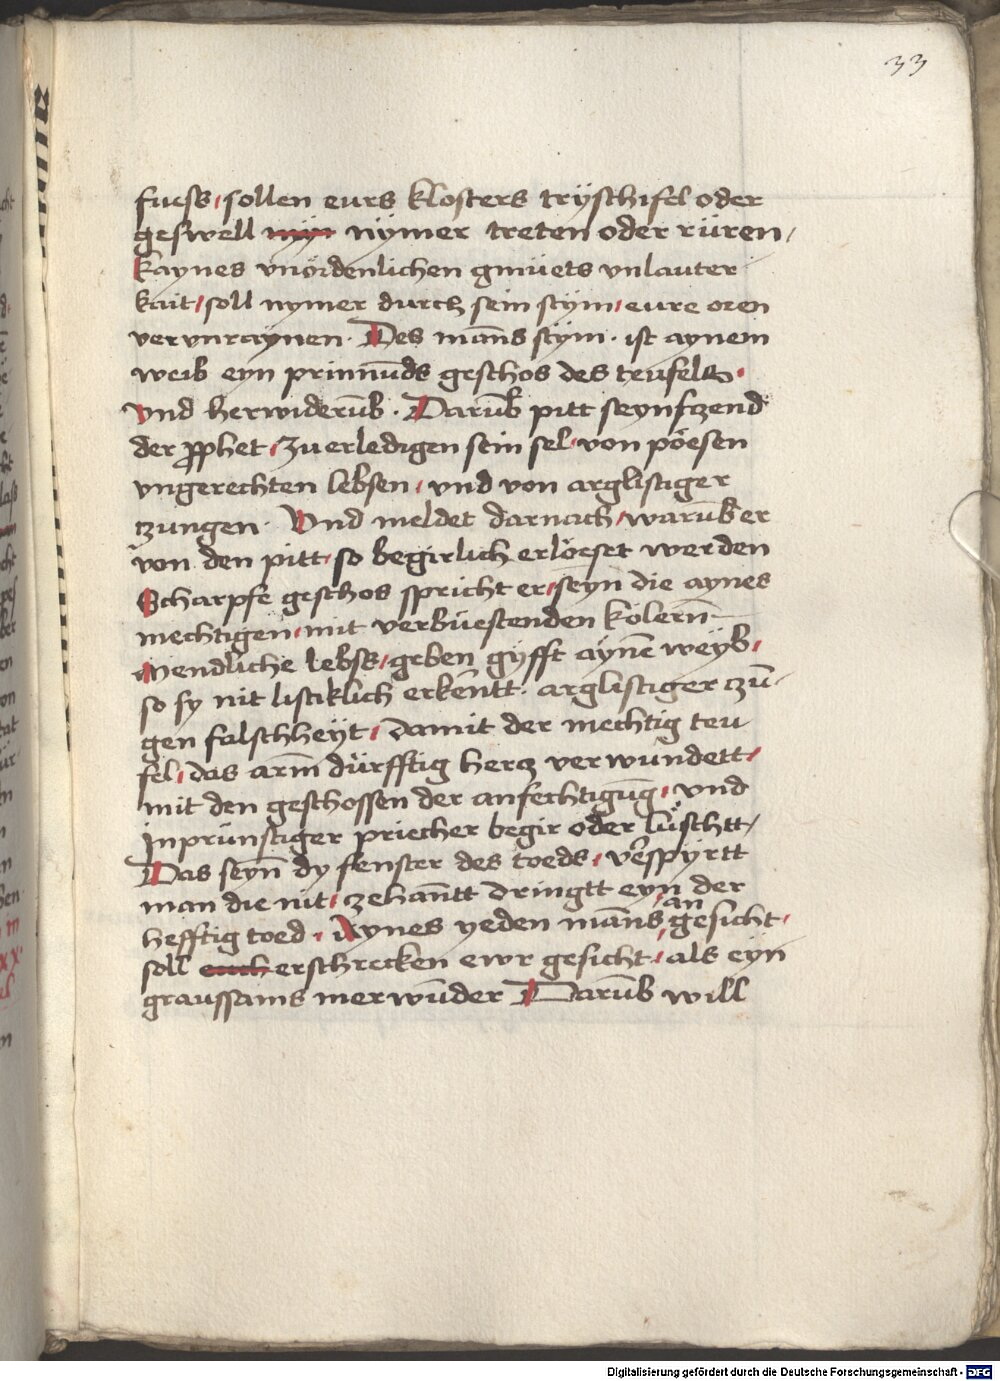 33
fuess, sollen eurs klosters tryschisel oder
geswell myn nÿmer treten oder rüren,
kaynes vnördenlichen gmüets vnlauter
kait, soll nymer durch sein stÿm, eure oren
vervnraÿnen. Des mans stÿm. ist aynem
weib eyn prinnuds geschos des teufels.
vnd herwiderūb. Darūb pitt seynfzend
der prophet, zu erledigen sein sel, von pöesen
vngerechten lebsen, vnd von arglistiger
tzungen. Vnd meldet darnach, warūb er
von den pitt, so begirlich erlöeset werden
Scharpfe geschos spricht er, seyn die aynes
mechtigen, mit verbüestenden kölern
Mendliche lebss, geben gyfft aÿnē weÿb,
so sy nit listiklich erkentt. arglistiger zū
gen falschheÿt, damit der mechtig teu
fel, das arm dürfftig hercz verwundett,
mit den geschossen der anfechtigūg, vnd
Inprünstiger priecher begir oder lüschtt,
Das seyn dy fenster des toeds, verspÿrtt
man die nit, zehantt dringtt eyn der
hefftig toed. Aynes yeden mans, an gesicht,
soll euch erschrecken ewr gesicht, als eyn
graussams merwūder Darūb will
Digitalisierung gefördert durch die Deutsche Forschungsgemeinschaft - DFG